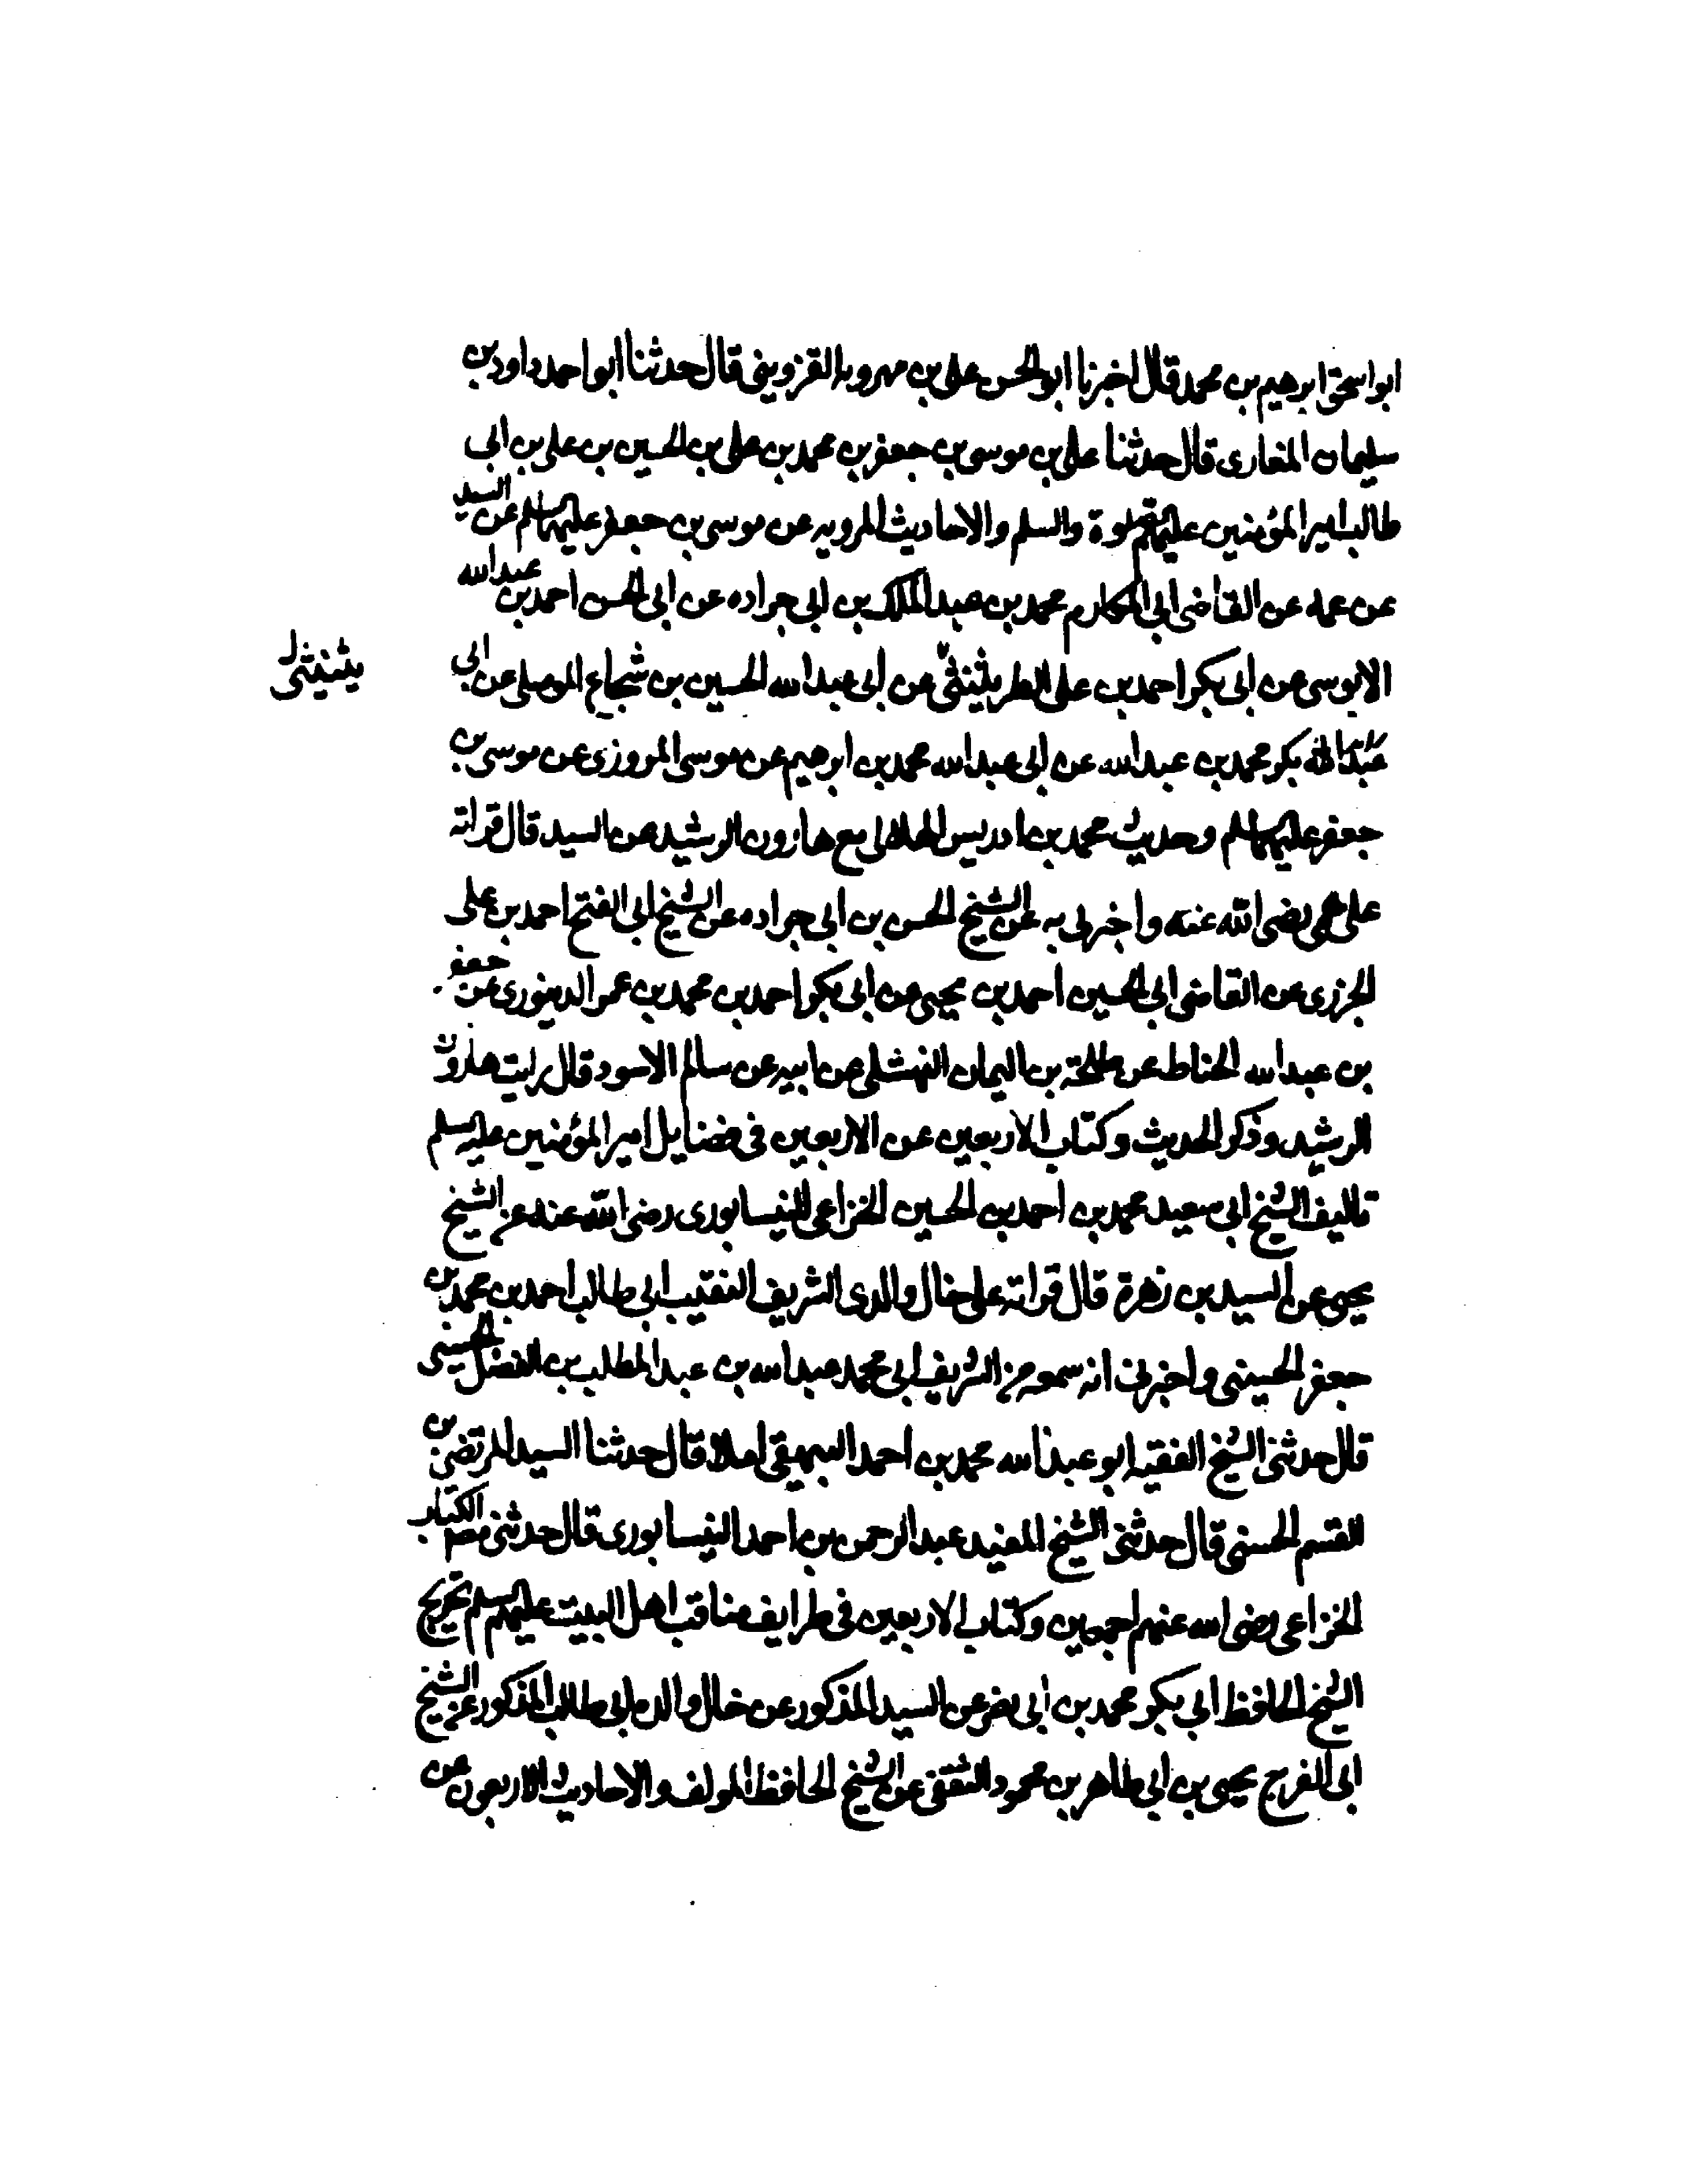 ابو اسحق ابرهيم بن محمد قال اخبرنا ابو الحسن على بن مهرويه القزوينى قال حدثنا ابو احمد داود بن
سليمان الغازى قال حدثنا على بن موسى بن جعفر بن محمد بن على بن الحسين بن على بن ابى
طالب امير المؤمنين عليهم الصلوة والسلم والاحاديث المرويه عن موسى بن جعفر عليهما السلم عن السيد
عن عمه عن القاضى ابى المكارم محمد بن عبد الملك بن ابى جراده عن ابى الحسن احمد بن عبد الله
الابوسى عن ابى بكر احمد بن على الطريثيثى عن ابى عبد الله الحسين بن شجاع الموصلى عن ابى
يثيثى
بكر محمد بن عبد الله عن ابى عبد الله محمد بن ابرهيم عن موسى المروزى عن موسى بن
جعفر عليهما السلم وحديث محمد بن ادريس الحلالى مع هارون الرشيد عن السيد قال قراته
على عمى رضى الله عنه واخبرنى به عن الشيخ الحسن بن ابى جراده عن الشيخ ابى الفتح احمد بن على
الجزرى عن القاضى ابى الحسين احمد بن يحيى عن ابى بكر احمد بن محمد بن عمر الدينورى عن جعفر
بن عبد الله الحناط عن طلحة بن اليمان النهشلى عن ابيه عن سالم الاسود قال رايت هارون
الرشيد وذكر الحديث وكتاب الاربعين عن الاربعين فى فضايل امير المؤمنين عليه السلم
تاليف الشيخ ابى سعيد محمد بن احمد بن الحسين الخزاعى النيسابورى رضى الله عنه عن الشيخ
يحيى عن السيد بن زهرة قال قراته على خال والدى الشريف النقيب ابى طالب احمد بن محمد بن
جعفر الحسينى واخبرنى انه سمعه من الشريف ابى محمد عبد الله بن عبد المطلب بن الفضل الحسينى
قال حدثنى الشيخ الفقيه ابو عبد الله محمد بن احمد البيهقى املاء قال حدثنا السيد المرتضى بن
القسم الحسنى قال حدثنى الشيخ المفيد عبد الرحمن بن احمد النيسابورى قال حدثنى مصنف الكتاب
الخزاعى رضى الله عنهم اجمعين وكتاب الاربعين فى طرايف مناقب اهل البيت عليهم السلم تخريج
الشيخ الحافظ ابى بكر محمد بن ابى نصر عن السيد المذكور عن خال والده ابى طالب المذكور عن الشيخ
ابى الفرج يحيى بن ابى طاهر بن محمود الثقفى عن الشيخ الحافظ المولف والاحاديث الاربعون عن